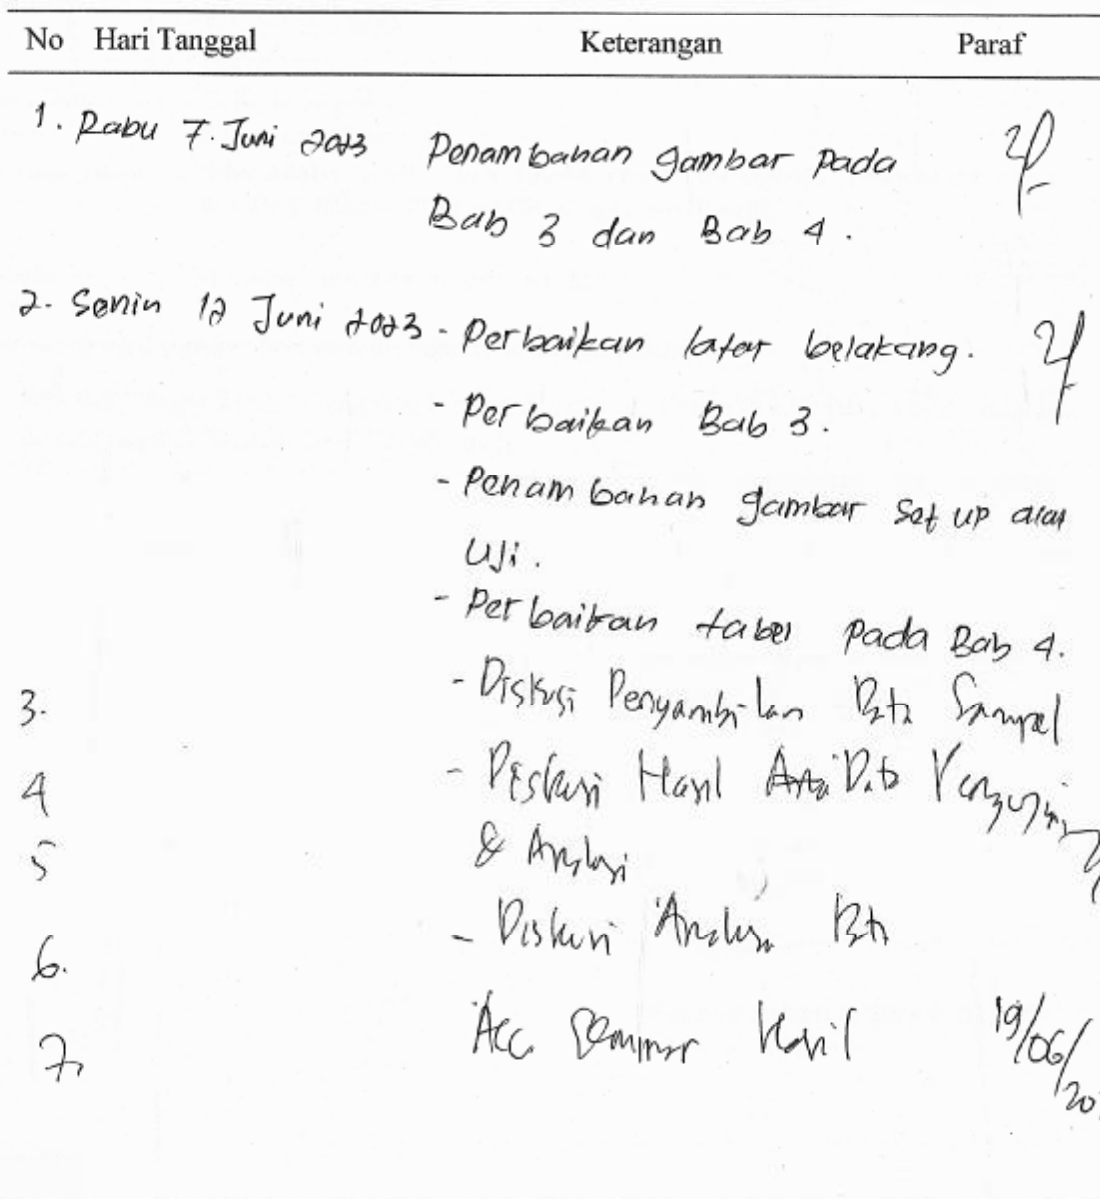 No Hari Tanggal Keterangan Paraf
1. Rabu 7. Juni 2023 Penambahan gambar pada
Bab 3 dan Bab 4.
2. Senin 12 Juni 2023 - Perbaikan latar belakang.
- Perbaikan Bab 3.
- Penambahan gambar set up alat
Uji.
- Perbaikan tabel pada Bab 4.
3. - Diskusi Pengambilan Sampel
4 - Diskusi Hasil Data Pengujian
5 & Analisi
6. - Diskusi Analisa
7. Acc Seminar Hasil 19/06/20